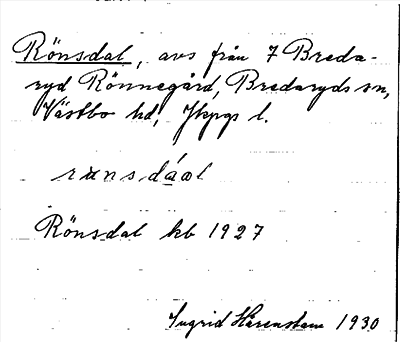 Rönsdal, avs från 7 Breda-
ryd Rönnegård, Bredaryds sn,
Västbo hd, Jkpgs l.
rɯnsdáal
Rönsdal kb 1927
Ingrid Hårenstam 1930